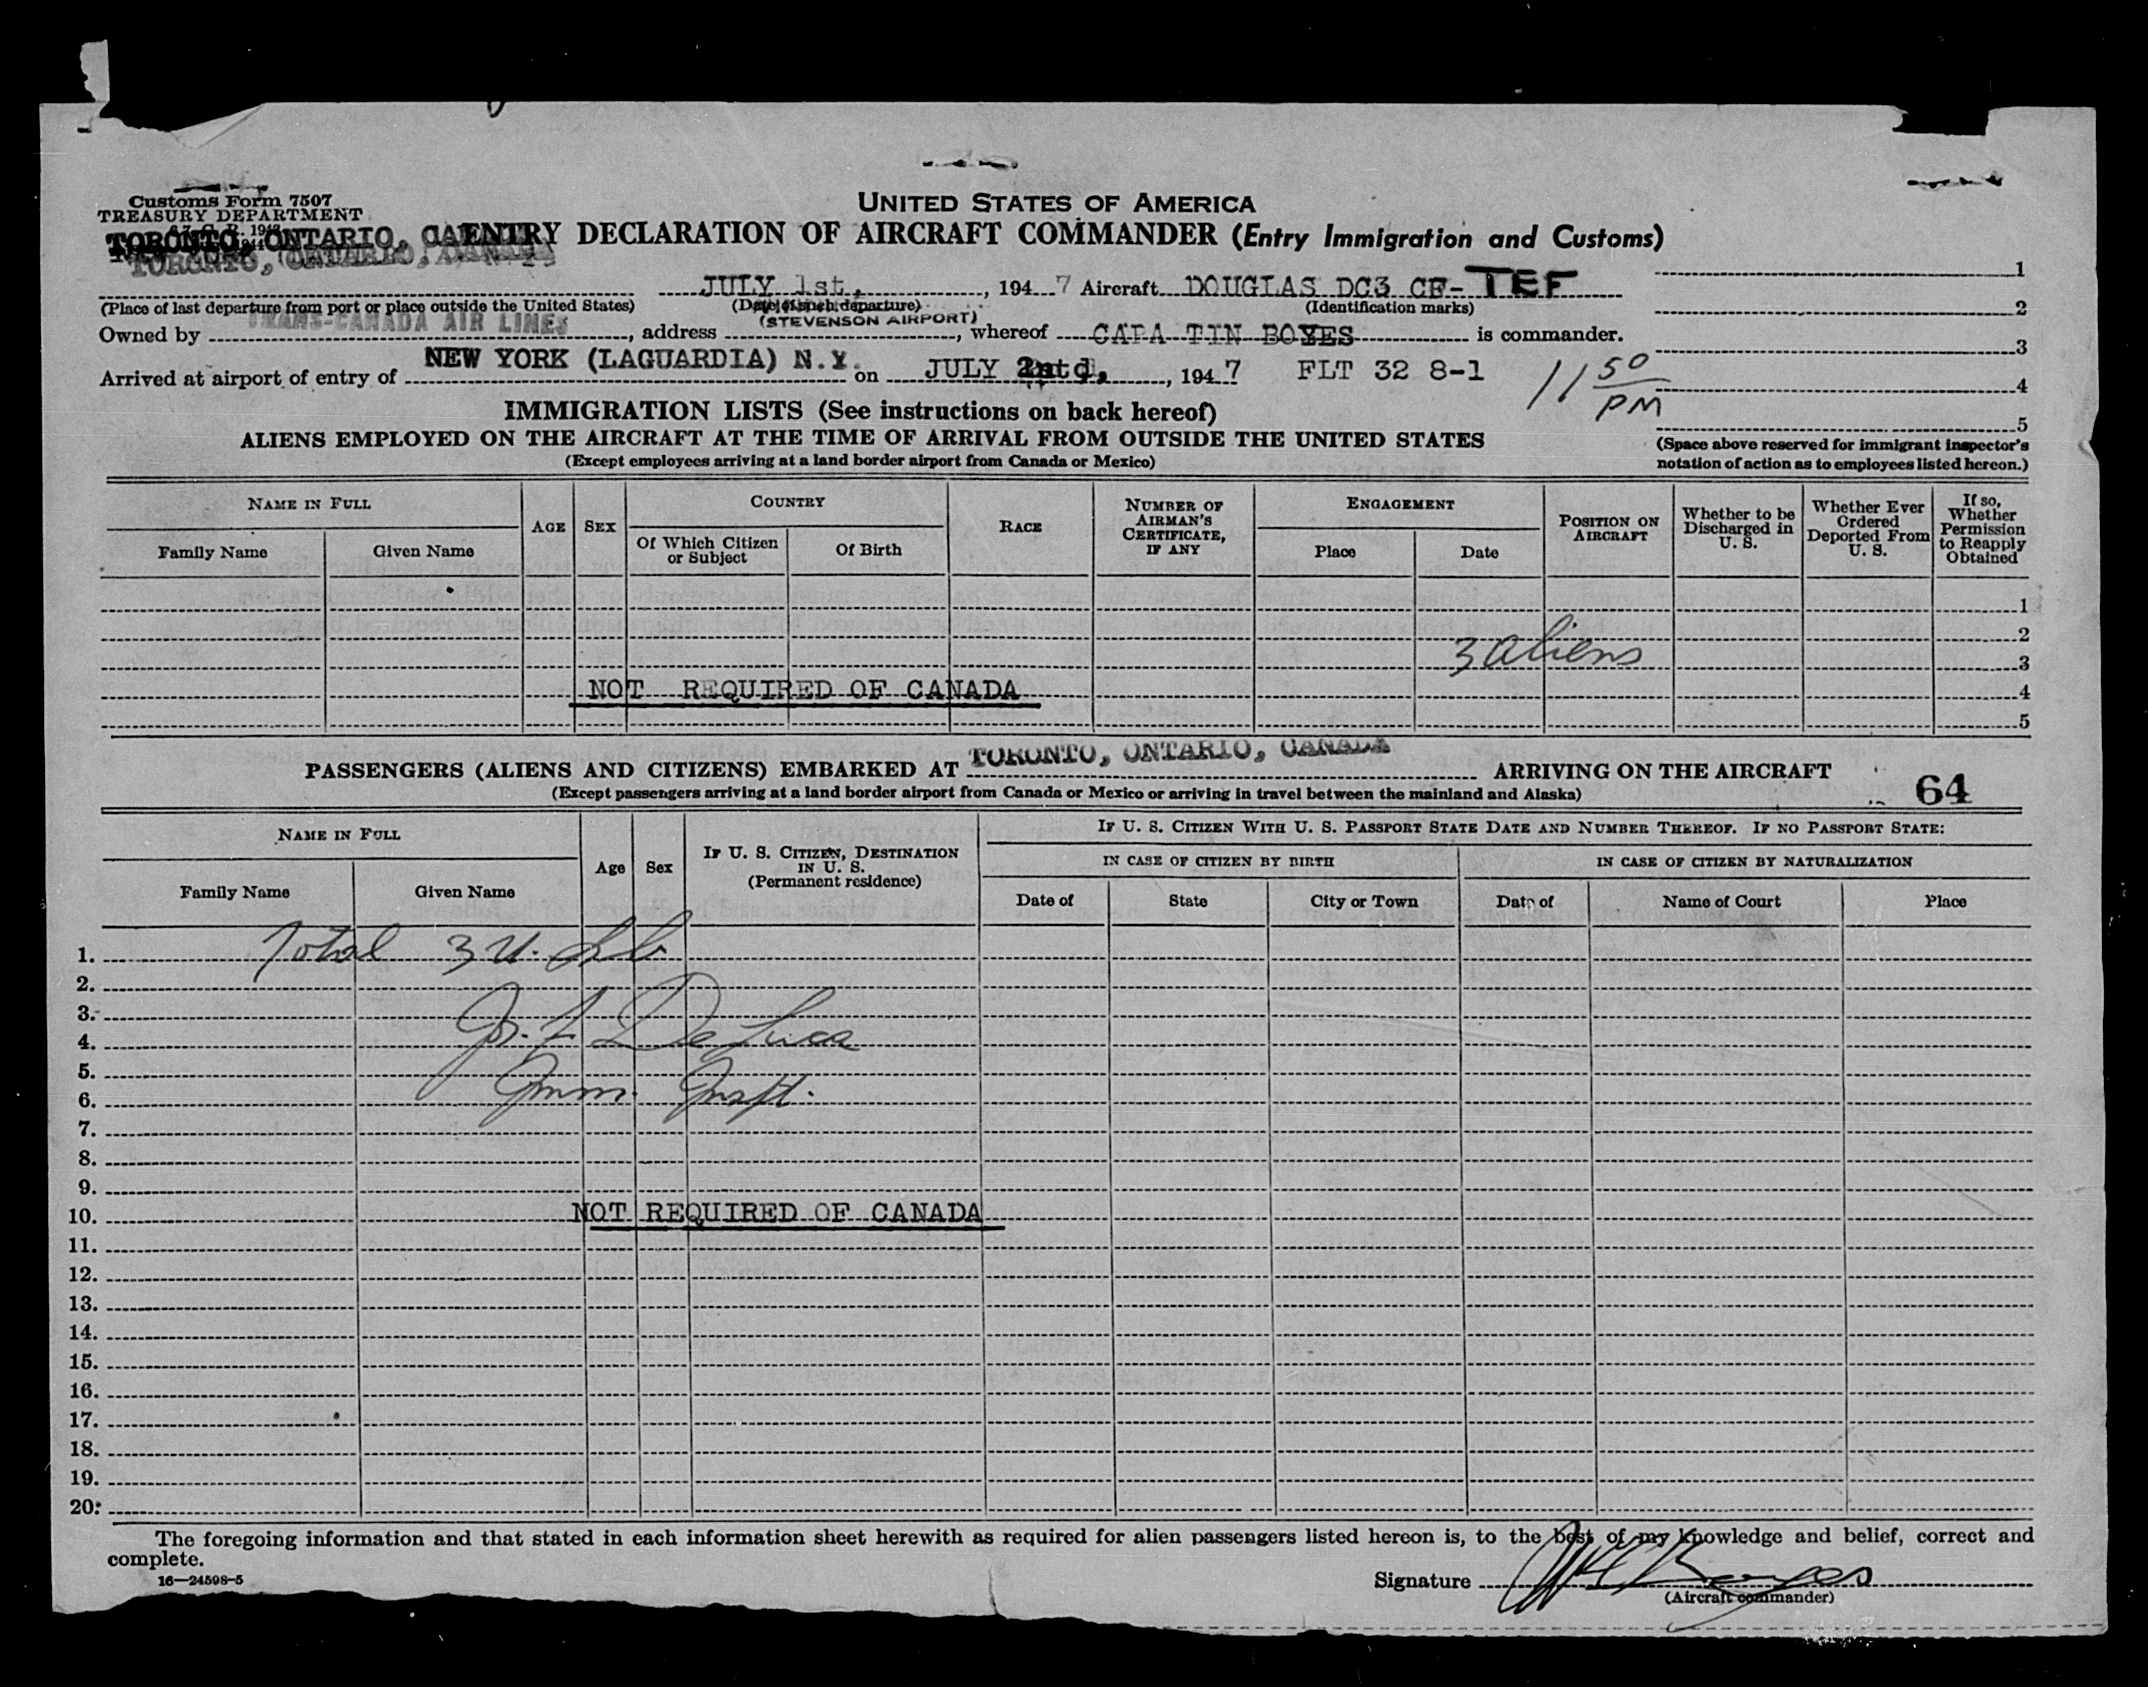 Customs Form 7507
TREASURY DEPARTMENT
UNITED STATES OF AMERICA
TORONTO, ONTARIO, CA ENTRY DECLARATION OF AIRCRAFT COMMANDER (Entry Immigration and Customs)
TORONTO, ONTARIO, CANADA
JULY 1st, , 194 7 Aircraft DOUGLAS DC3 CF-TEF
(Place of last departure from port or place outside the United States) (Date of such departure) (Identification marks)
(STEVENSON AIRPORT)
Owned by TRANS-CANADA AIR LINES , address , whereof CAPA TIN BOYES is commander.
Arrived at airport of entry of NEW YORK (LAGUARDIA) N.Y. on JULY , 194 7 FLT 32 8-1 11 50 PM
1
2
3
4
5
(Space above reserved for immigrant inspector's notation of action as to employees listed hereon.)
IMMIGRATION LISTS (See instructions on back hereof)
ALIENS EMPLOYED ON THE AIRCRAFT AT THE TIME OF ARRIVAL FROM OUTSIDE THE UNITED STATES
(Except employees arriving at a land border airport from Canada or Mexico)
NAME IN FULL
Family Name
Given Name
AGE
SEX
COUNTRY
Of Which Citizen or Subject
Of Birth
RACE
NUMBER OF AIRMAN'S CERTIFICATE, IF ANY
ENGAGEMENT
Place
Date
POSITION ON AIRCRAFT
Whether to be Discharged in U. S.
Whether Ever Ordered Deported From U. S.
If so, Whether Permission to Reapply Obtained
1
2
3 aliens
3
NOT REQUIRED OF CANADA 4
5
PASSENGERS (ALIENS AND CITIZENS) EMBARKED AT TORONTO, ONTARIO, CANADA ARRIVING ON THE AIRCRAFT
(Except passengers arriving at a land border airport from Canada or Mexico or arriving in travel between the mainland and Alaska)
64
NAME IN FULL
Family Name
Given Name
Age
Sex
IF U. S. CITIZEN, DESTINATION IN U. S.
(Permanent residence)
IF U. S. CITIZEN WITH U. S. PASSPORT STATE DATE AND NUMBER THEREOF. IF NO PASSPORT STATE:
IN CASE OF CITIZEN BY BIRTH
Date of
State
City or Town
IN CASE OF CITIZEN BY NATURALIZATION
Date of
Name of Court
Place
1. Total 3
2.
3.
4. Jos. F. De Luca
5.
6. Imm. Inspt.
7.
8.
9.
10. NOT REQUIRED OF CANADA
11.
12.
13.
14.
15.
16.
17.
18.
19.
20.
The foregoing information and that stated in each information sheet herewith as required for alien passengers listed hereon is, to the best of my knowledge and belief, correct and
complete.
16—24598-5
Signature Boyes
(Aircraft commander)